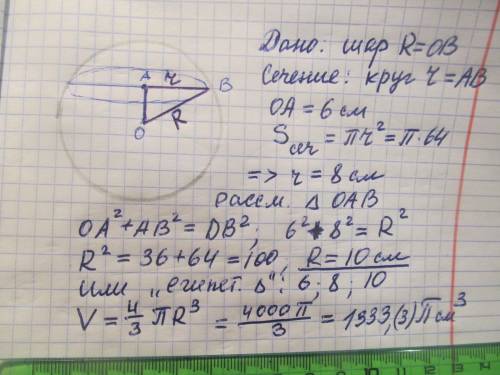 A r B
O R
Дано: шар R=OB
Сечение: круг r=AB
OA = 6 см
Sсеч = πr² = π·64
=> r = 8 см
рассм. Δ OAB
OA² + AB² = DB²; 6² + 8² = R²
R² = 36 + 64 = 100, R = 10 см
Или „египет. Δ": 6; 8; 10
V = 4/3 πR³ = 4000π/3 = 1333,(3) π см³